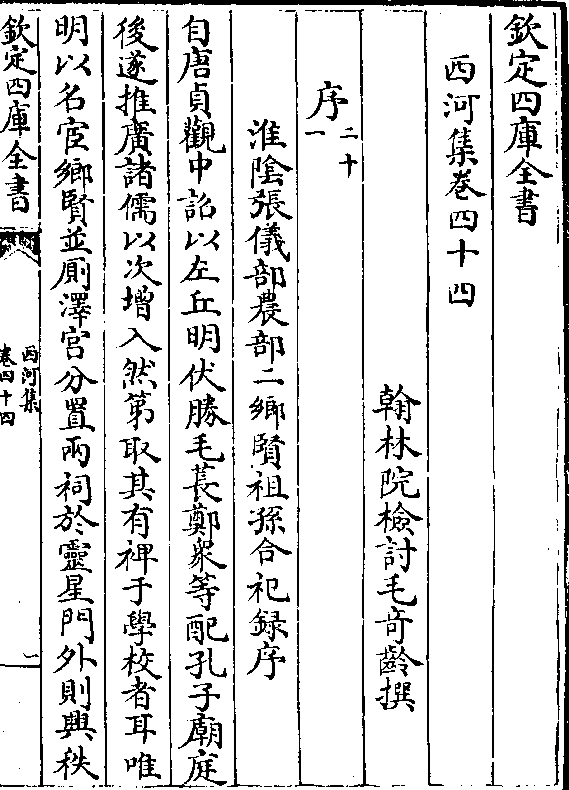 欽定四庫全書
西河集卷四十四
翰林院檢討毛奇齡撰
序二十一
淮陰張儀部農部二鄉賢祖孫合祀録序
自唐貞觀中詔以左丘明伏勝毛萇鄭衆等配孔子廟庭
後遂推廣諸儒以次增入然第取其有裨于學校者耳唯
明以名宦鄉賢並厠澤宫分置兩祠於靈星門外則與秩
欽定四庫全書
西河集
卷四十四
一